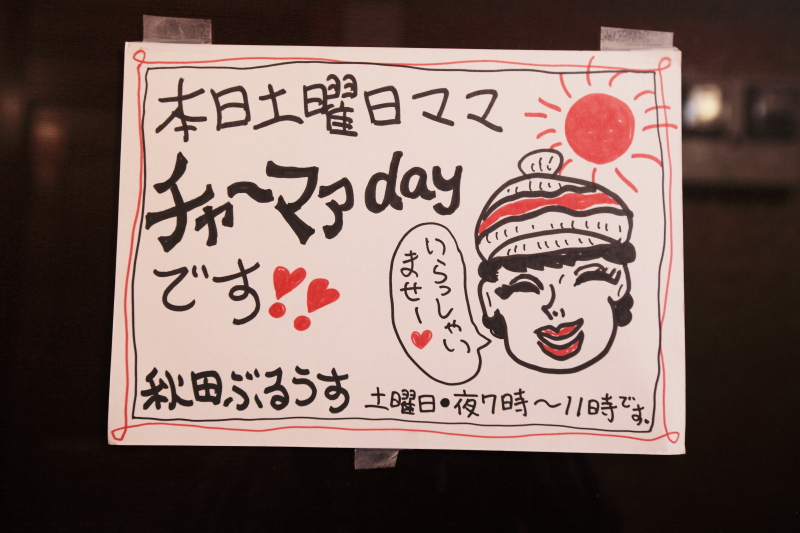 本日土曜日ママ
チャ〜マァday
です!!
いらっしゃい
ませー
秋田ぶるうす
土曜日・夜7時〜11時です。